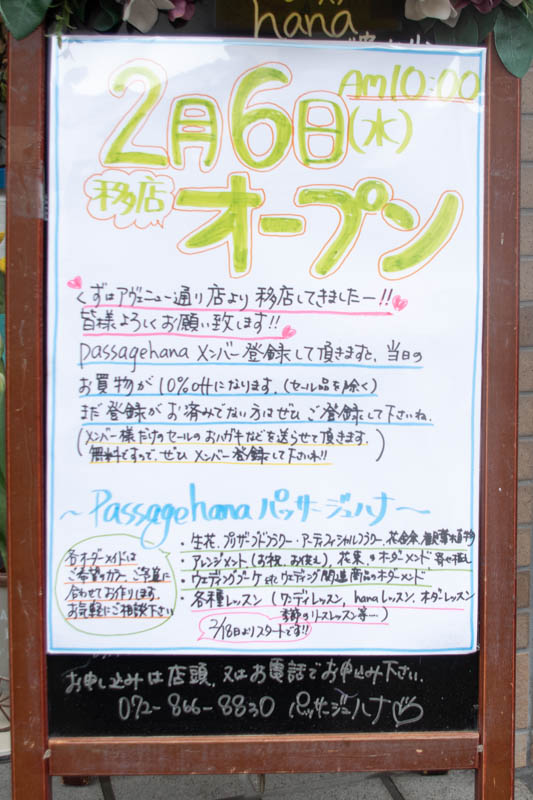 hana
AM10:00
2月6日(水)
移店
オープン
くずはアヴェニュー通り店より移店してきましたー!!
皆様よろしくお願い致します!!
passagehana メンバー登録して頂きますと、当日の
お買物が10%offになります。(セール品を除く)
まだ登録がお済みでない方はぜひご登録して下さいね。
(メンバー様だけのセールのおハガキなどを送らせて頂きます。
無料ですので、ぜひメンバー登録して下さいね!!)
〜Passagehana パッサージュハナ〜
・生花、プリザーブドフラワー・アーティフィシャルフラワー、花金魚、観葉植物
・アレンジメント(お祝、お供え)、花束のオーダーメンド 寄せ植え
・ウェディングブーケ etc ウェディング関連商品のオーダーメンド
・各種レッスン(ワンディレッスン、hanaレッスン、オーダーレッスン
季節のリースレッスン等…)
2/18日よりスタートです!!
各オーダーメイドは
ご希望のカラー、ご予算に
合わせてお作りします。
お気軽にご相談下さい
お申し込みは店頭、又はお電話でお申込み下さい。
072-866-8830 パッサージュハナ♡